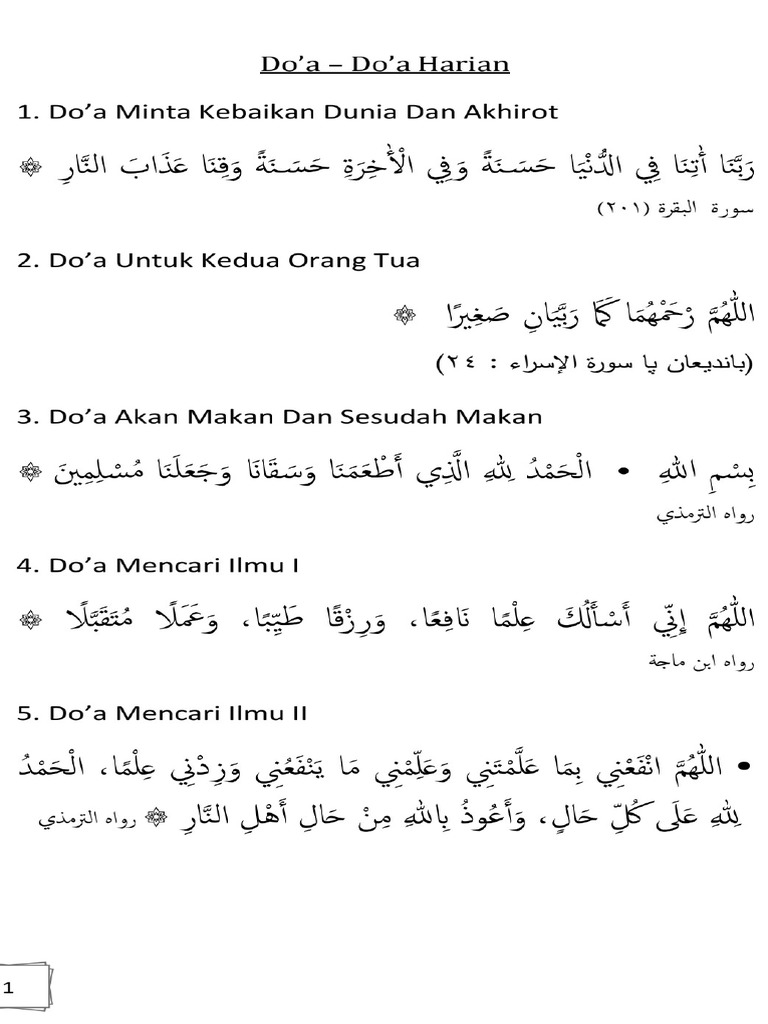 Do’a – Do’a Harian
1. Do’a Minta Kebaikan Dunia Dan Akhirot
رَبَّنَا أٰتِنَا فِي الدُّنْيَا حَسَنَةً وَفِي الْأٰخِرَةِ حَسَنَةً وَقِنَا عَذَابَ النَّارِ ۞
سورة البقرة (٢٠١)
2. Do’a Untuk Kedua Orang Tua
اللّٰهُمَّ رْحَمْهُمَا كَمَا رَبَّيَانِ صَغِيرًا ۞
(بانديعان پا سورة الإسراء : ٢٤)
3. Do’a Akan Makan Dan Sesudah Makan
بِسْمِ اللهِ • الْحَمْدُ لِلهِ الَّذِي أَطْعَمَنَا وَسَقَانَا وَجَعَلَنَا مُسْلِمِينَ ۞
رواه الترمذي
4. Do’a Mencari Ilmu I
اللّٰهُمَّ إِنِّي أَسْأَلُكَ عِلْمًا نَافِعًا، وَرِزْقًا طَيِّبًا، وَعَمَلًا مُتَقَبَّلًا ۞
رواه ابن ماجة
5. Do’a Mencari Ilmu II
• اللّٰهُمَّ انْفَعْنِي بِمَا عَلَّمْتَنِي وَعَلِّمْنِي مَا يَنْفَعُنِي وَزِدْنِي عِلْمًا، الْحَمْدُ
لِلهِ عَلَى كُلِّ حَالٍ، وَأَعُوذُ بِاللهِ مِنْ حَالِ أَهْلِ النَّارِ ۞ رواه الترمذي
1